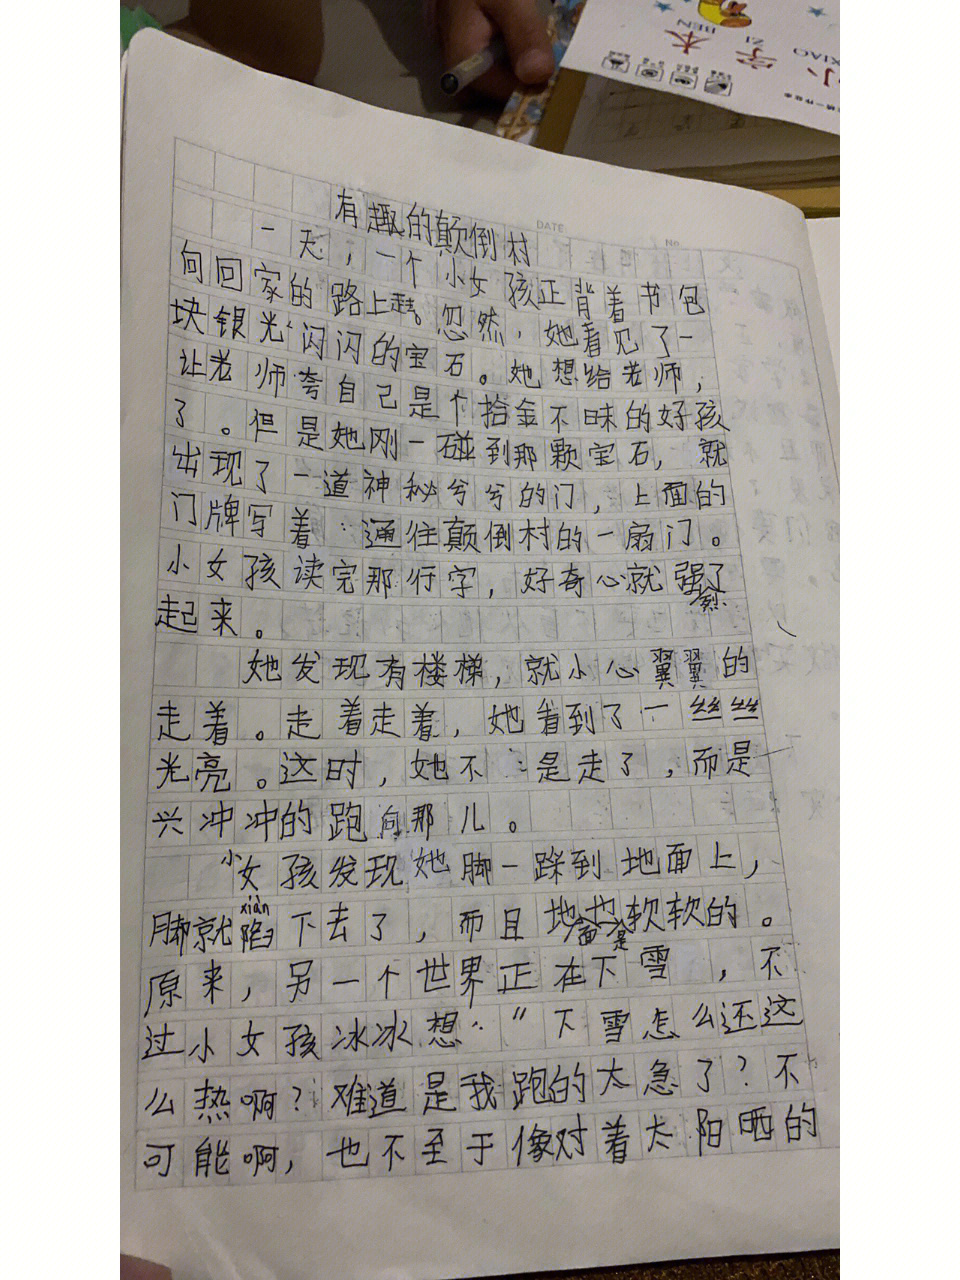 小字本
XIAO ZI BEN
DATE
No
有趣的颠倒村
一天，一个小女孩正背着书包
向回家的路上走。忽然，她看见了一
块银光闪闪的宝石。她想给老师，
让老师夸自己是个拾金不昧的好孩
了。但是她刚一碰到那颗宝石，就
出现了一道神秘兮兮的门，上面的
门牌写着：通往颠倒村的一扇门。
小女孩读完那行字，好奇心就强烈了
起来。
她发现有楼梯，就小心翼翼的
走着。走着走着，她看到了一丝丝
光亮。这时，她不是走了，而是
兴冲冲的跑向那儿。
小女孩发现她脚一踩到地面上，
xiàn
脚就陷下去了，而且地面也是软软的。
原来，另一个世界正在下雪，不
过小女孩冰冰想：“下雪怎么还这
么热啊？难道是我跑的太急了？不
可能啊，也不至于像对着太阳晒的